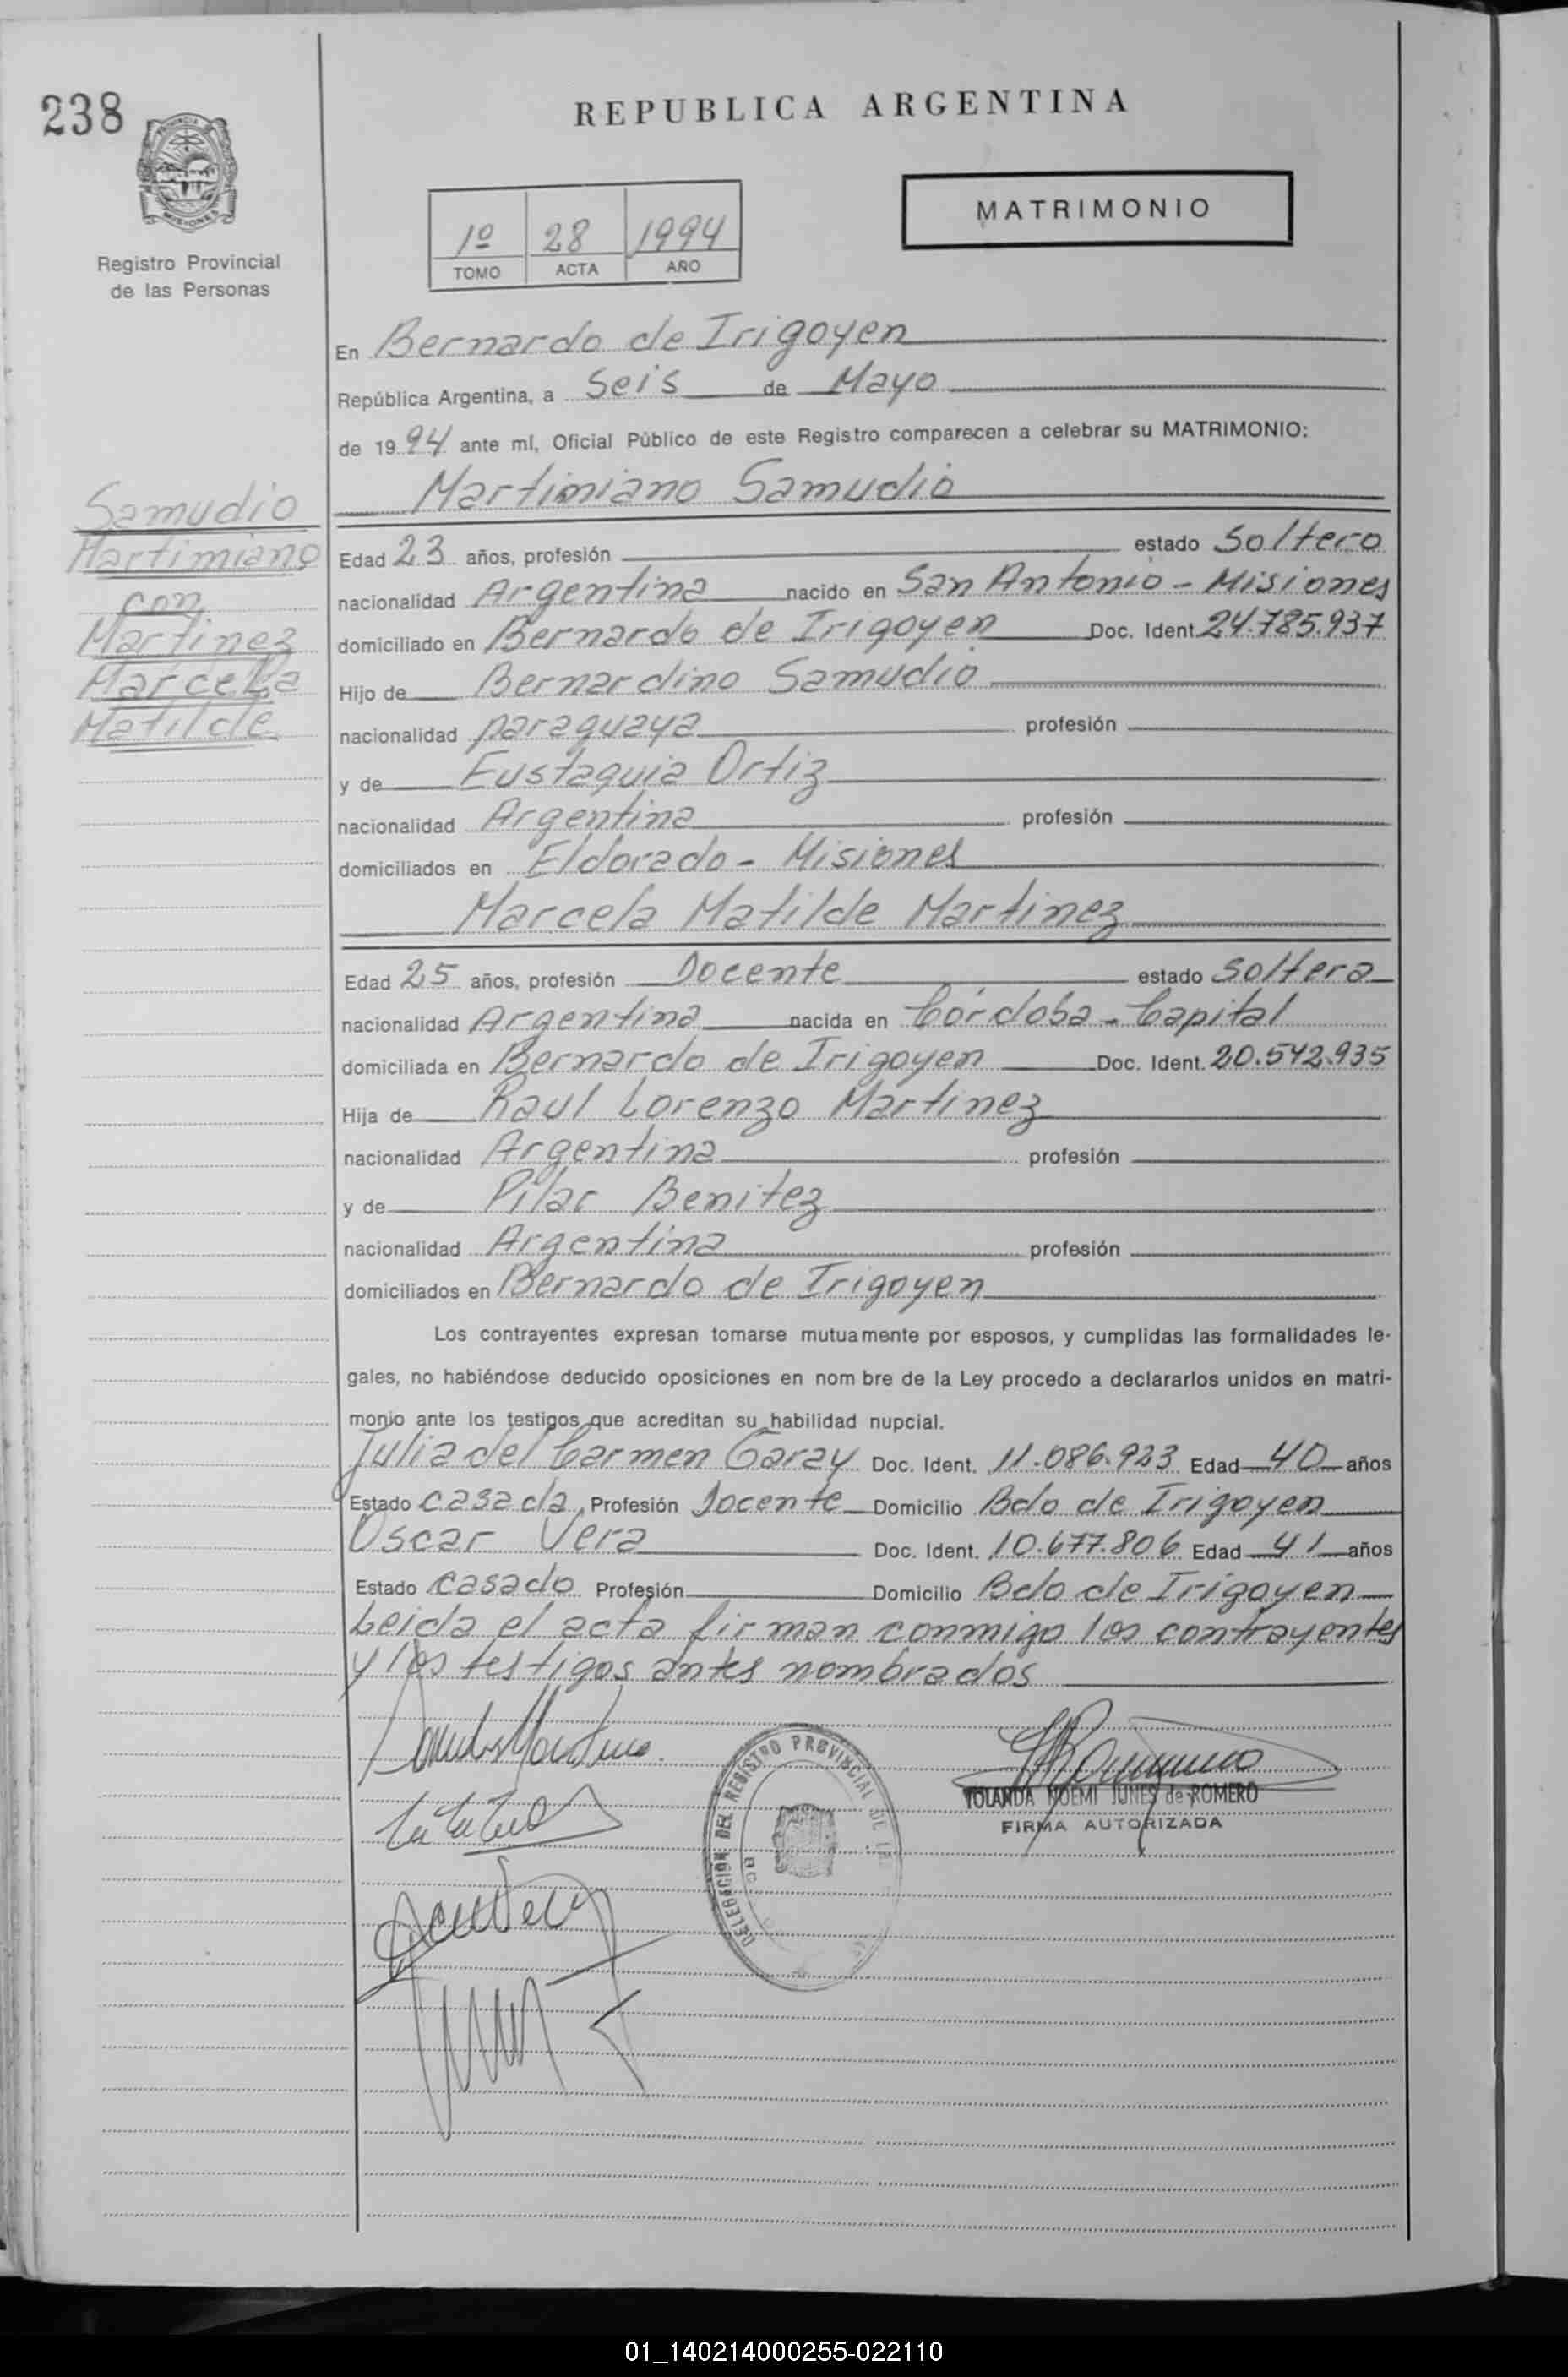 238
REPUBLICA ARGENTINA
MATRIMONIO
1º 28 1994
TOMO ACTA AÑO
Registro Provincial
de las Personas
En Bernardo de Irigoyen
República Argentina, a Seis de Mayo
de 1994 ante mí, Oficial Público de este Registro comparecen a celebrar su MATRIMONIO:
Martimiano Samudio
Samudio
Martimiano
con
Martinez
Marcela
Matilde
Edad 23 años, profesión estado Soltero
nacionalidad Argentina nacido en San Antonio - Misiones
domiciliado en Bernardo de Irigoyen Doc. Ident. 24.785.937
Hijo de Bernardino Samudio
nacionalidad paraguaya profesión
y de Eustaquia Ortiz
nacionalidad Argentina profesión
domiciliados en Eldorado - Misiones
Marcela Matilde Martinez
Edad 25 años, profesión Docente estado Soltera
nacionalidad Argentina nacida en Córdoba - Capital
domiciliada en Bernardo de Irigoyen Doc. Ident. 20.542.935
Hija de Raul Lorenzo Martinez
nacionalidad Argentina profesión
y de Pilar Benitez
nacionalidad Argentina profesión
domiciliados en Bernardo de Irigoyen
Los contrayentes expresan tomarse mutuamente por esposos, y cumplidas las formalidades le-
gales, no habiéndose deducido oposiciones en nom bre de la Ley procedo a declararlos unidos en matri-
monio ante los testigos que acreditan su habilidad nupcial.
Julia del Carmen Garay Doc. Ident. 11.086.923 Edad 40 años
Estado casada Profesión Docente Domicilio Bdo de Irigoyen
Oscar Vera Doc. Ident. 10.677.806 Edad 41 años
Estado casado Profesión Domicilio Bdo de Irigoyen
Leida el acta firman conmigo los contrayentes
y los testigos antes nombrados
DELEGACION DEL REGISTRO PROVINCIAL DE
YOLANDA NOEMI JUNES de ROMERO
FIRMA AUTORIZADA
01_140214000255-022110